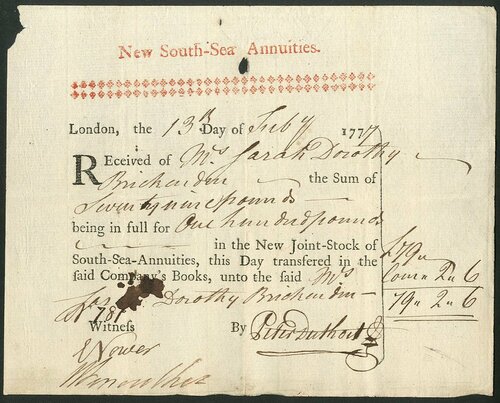 New South-Sea Annuities.
London, the 13th Day of Feby 1777
Received of Mrs Sarah Dorothy
Brickenden the Sum of
Seventy nine pounds
being in full for One hundred pounds
in the New Joint-Stock of
South-Sea-Annuities, this Day transfered in the
said Company's Books, unto the said Mrs
Dorothy Brickenden
Witness By Peter Duthoit
£79
Com 2 6
79 2 6